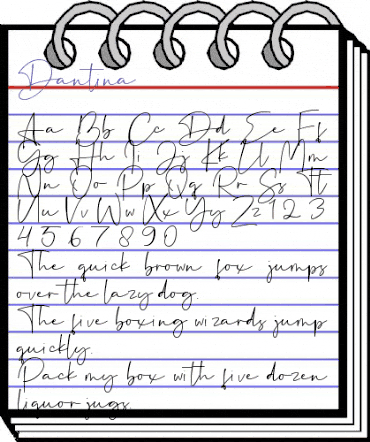 Dantina
Aa Bb Cc Dd Ee Ff
Gg Hh Ii Jj Kk Ll Mm
Nn Oo Pp Qq Rr Ss Tt
Uu Vv Ww Xx Yy Zz 1 2 3
4 5 6 7 8 9 0
The quick brown fox jumps
over the lazy dog.
The five boxing wizards jump
quickly.
Pack my box with five dozen
liquor jugs.